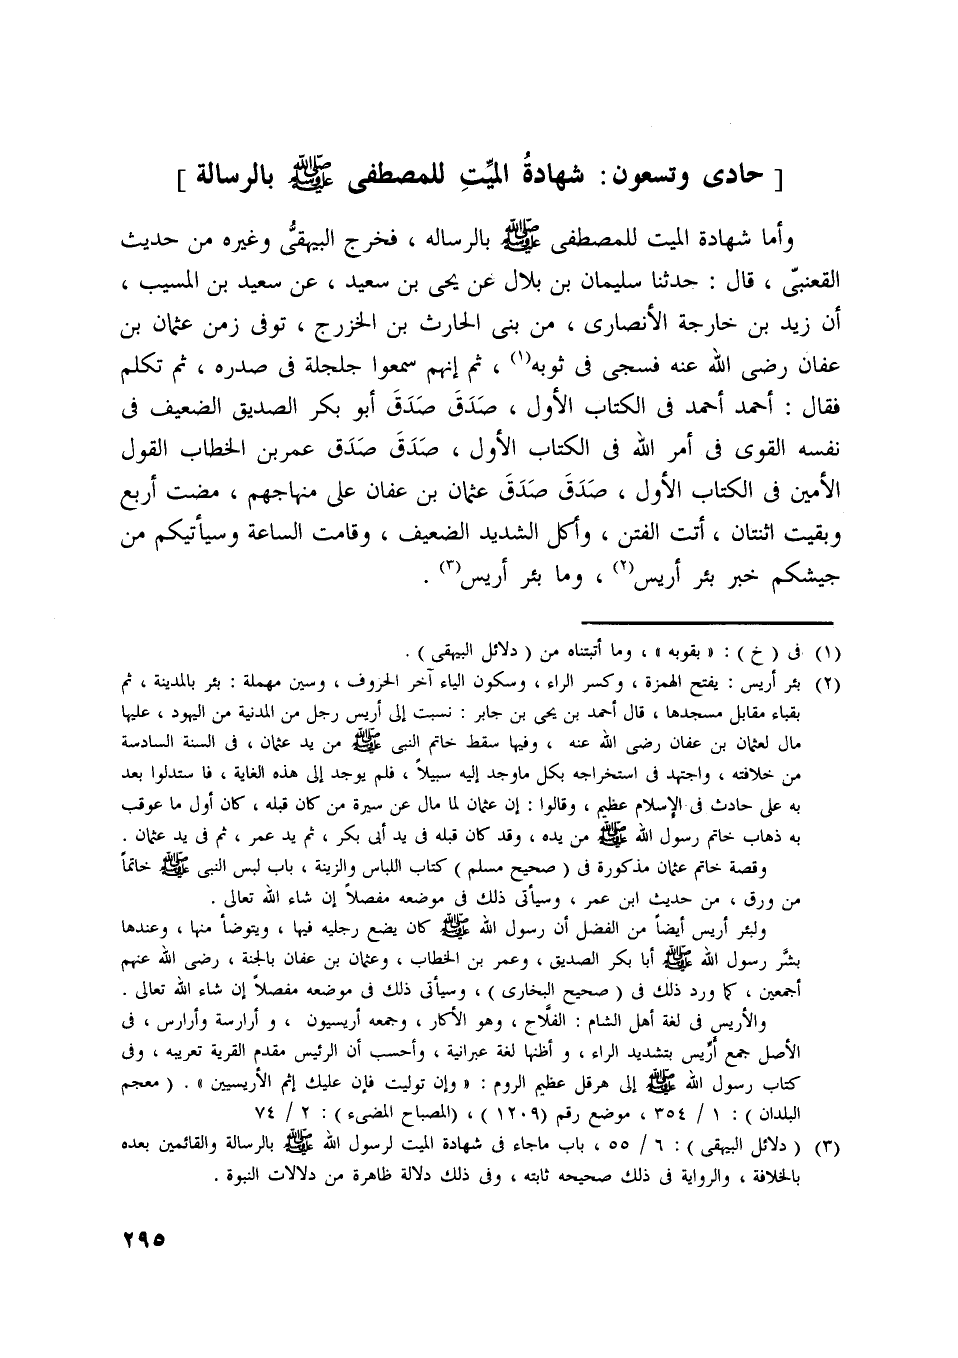 [ حادى وتسعون: شهادةُ الميِّتِ للمصطفى ﷺ بالرسالة ]
وأما شهادة الميت للمصطفى ﷺ بالرساله ، فخرج البيهقىُّ وغيره من حديث
القعنبىّ ، قال : حدثنا سليمان بن بلال عن يحى بن سعيد ، عن سعيد بن المسيب ،
أن زيد بن خارجة الأنصارى ، من بنى الحارث بن الخزرج ، توفى زمن عثمان بن
عفان رضى الله عنه فسجى فى ثوبه(١) ، ثم إنهم سمعوا جلجلة فى صدره ، ثم تكلم
فقال : أحمد أحمد فى الكتاب الأول ، صَدَقَ صَدَقَ أبو بكر الصديق الضعيف فى
نفسه القوى فى أمر الله فى الكتاب الأول ، صَدَقَ صَدَق عمربن الخطاب القول
الأمين فى الكتاب الأول ، صَدَقَ صَدَقَ عثمان بن عفان على منهاجهم ، مضت أربع
وبقيت اثنتان ، أتت الفتن ، وأكل الشديد الضعيف ، وقامت الساعة وسيأتيكم من
جيشكم خبر بئر أريس(٢) ، وما بئر أريس(٣) .
(١) فى ( خ ) : « بقوبه » ، وما أثبتناه من ( دلائل البيهقى ) .
(٢) بئر أريس : يفتح الهمزة ، وكسر الراء ، وسكون الياء آخر الحروف ، وسين مهملة : بئر بالمدينة ، ثم
بقباء مقابل مسجدها ، قال أحمد بن يحى بن جابر : نسبت إلى أريس رجل من المدنية من اليهود ، عليها
مال لعثمان بن عفان رضى الله عنه ، وفيها سقط خاتم النبى ﷺ من يد عثمان ، فى السنة السادسة
من خلافته ، واجتهد فى استخراجه بكل ماوجد إليه سبيلاً ، فلم يوجد إلى هذه الغاية ، فا ستدلوا بعد
به على حادث فى الإسلام عظيم ، وقالوا : إن عثمان لما مال عن سيرة من كان قبله ، كان أول ما عوقب
به ذهاب خاتم رسول الله ﷺ من يده ، وقد كان قبله فى يد أبى بكر ، ثم يد عمر ، ثم فى يد عثمان .
وقصة خاتم عثمان مذكورة فى ( صحيح مسلم ) كتاب اللباس والزينة ، باب لبس النبى ﷺ خاتماً
من ورق ، من حديث ابن عمر ، وسيأتى ذلك فى موضعه مفصلاً إن شاء الله تعالى .
ولبئر أريس أيضاً من الفضل أن رسول الله ﷺ كان يضع رجليه فيها ، ويتوضأ منها ، وعندها
بشَّر رسول الله ﷺ أبا بكر الصديق ، وعمر بن الخطاب ، وعثمان بن عفان بالجنة ، رضى الله عنهم
أجمعين ، كما ورد ذلك فى ( صحيح البخارى ) ، وسيأتى ذلك فى موضعه مفصلاً إن شاء الله تعالى .
والأريس فى لغة أهل الشام : الفلَّاح ، وهو الأكار ، وجمعه أريسيون ، و أرارسة وأرارس ، فى
الأصل جمع أرِّيس بتشديد الراء ، و أظنها لغة عبرانية ، وأحسب أن الرئيس مقدم القرية تعريبه ، وفى
كتاب رسول الله ﷺ إلى هرقل عظيم الروم : « وإن توليت فإن عليك إثم الأريسيين » . ( معجم
البلدان ) : ١ / ٣٥٤ ، موضع رقم (١٢٠٩ ) ، (المصباح المضىء ) : ٢ / ٧٤
(٣) ( دلائل البيهقى ) : ٦ / ٥٥ ، باب ماجاء فى شهادة الميت لرسول الله ﷺ بالرسالة والقائمين بعده
بالخلافة ، والرواية فى ذلك صحيحه ثابته ، وفى ذلك دلالة ظاهرة من دلالات النبوة .
٢٩٥